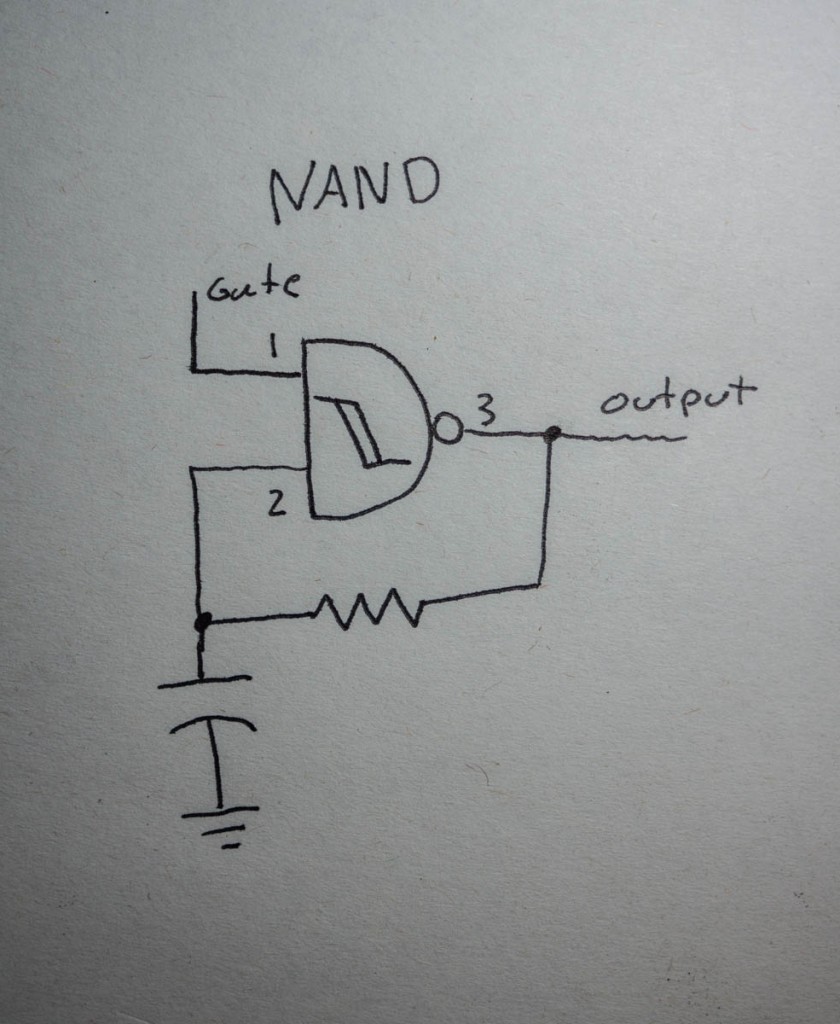 NAND
Gate
1
3
output
2